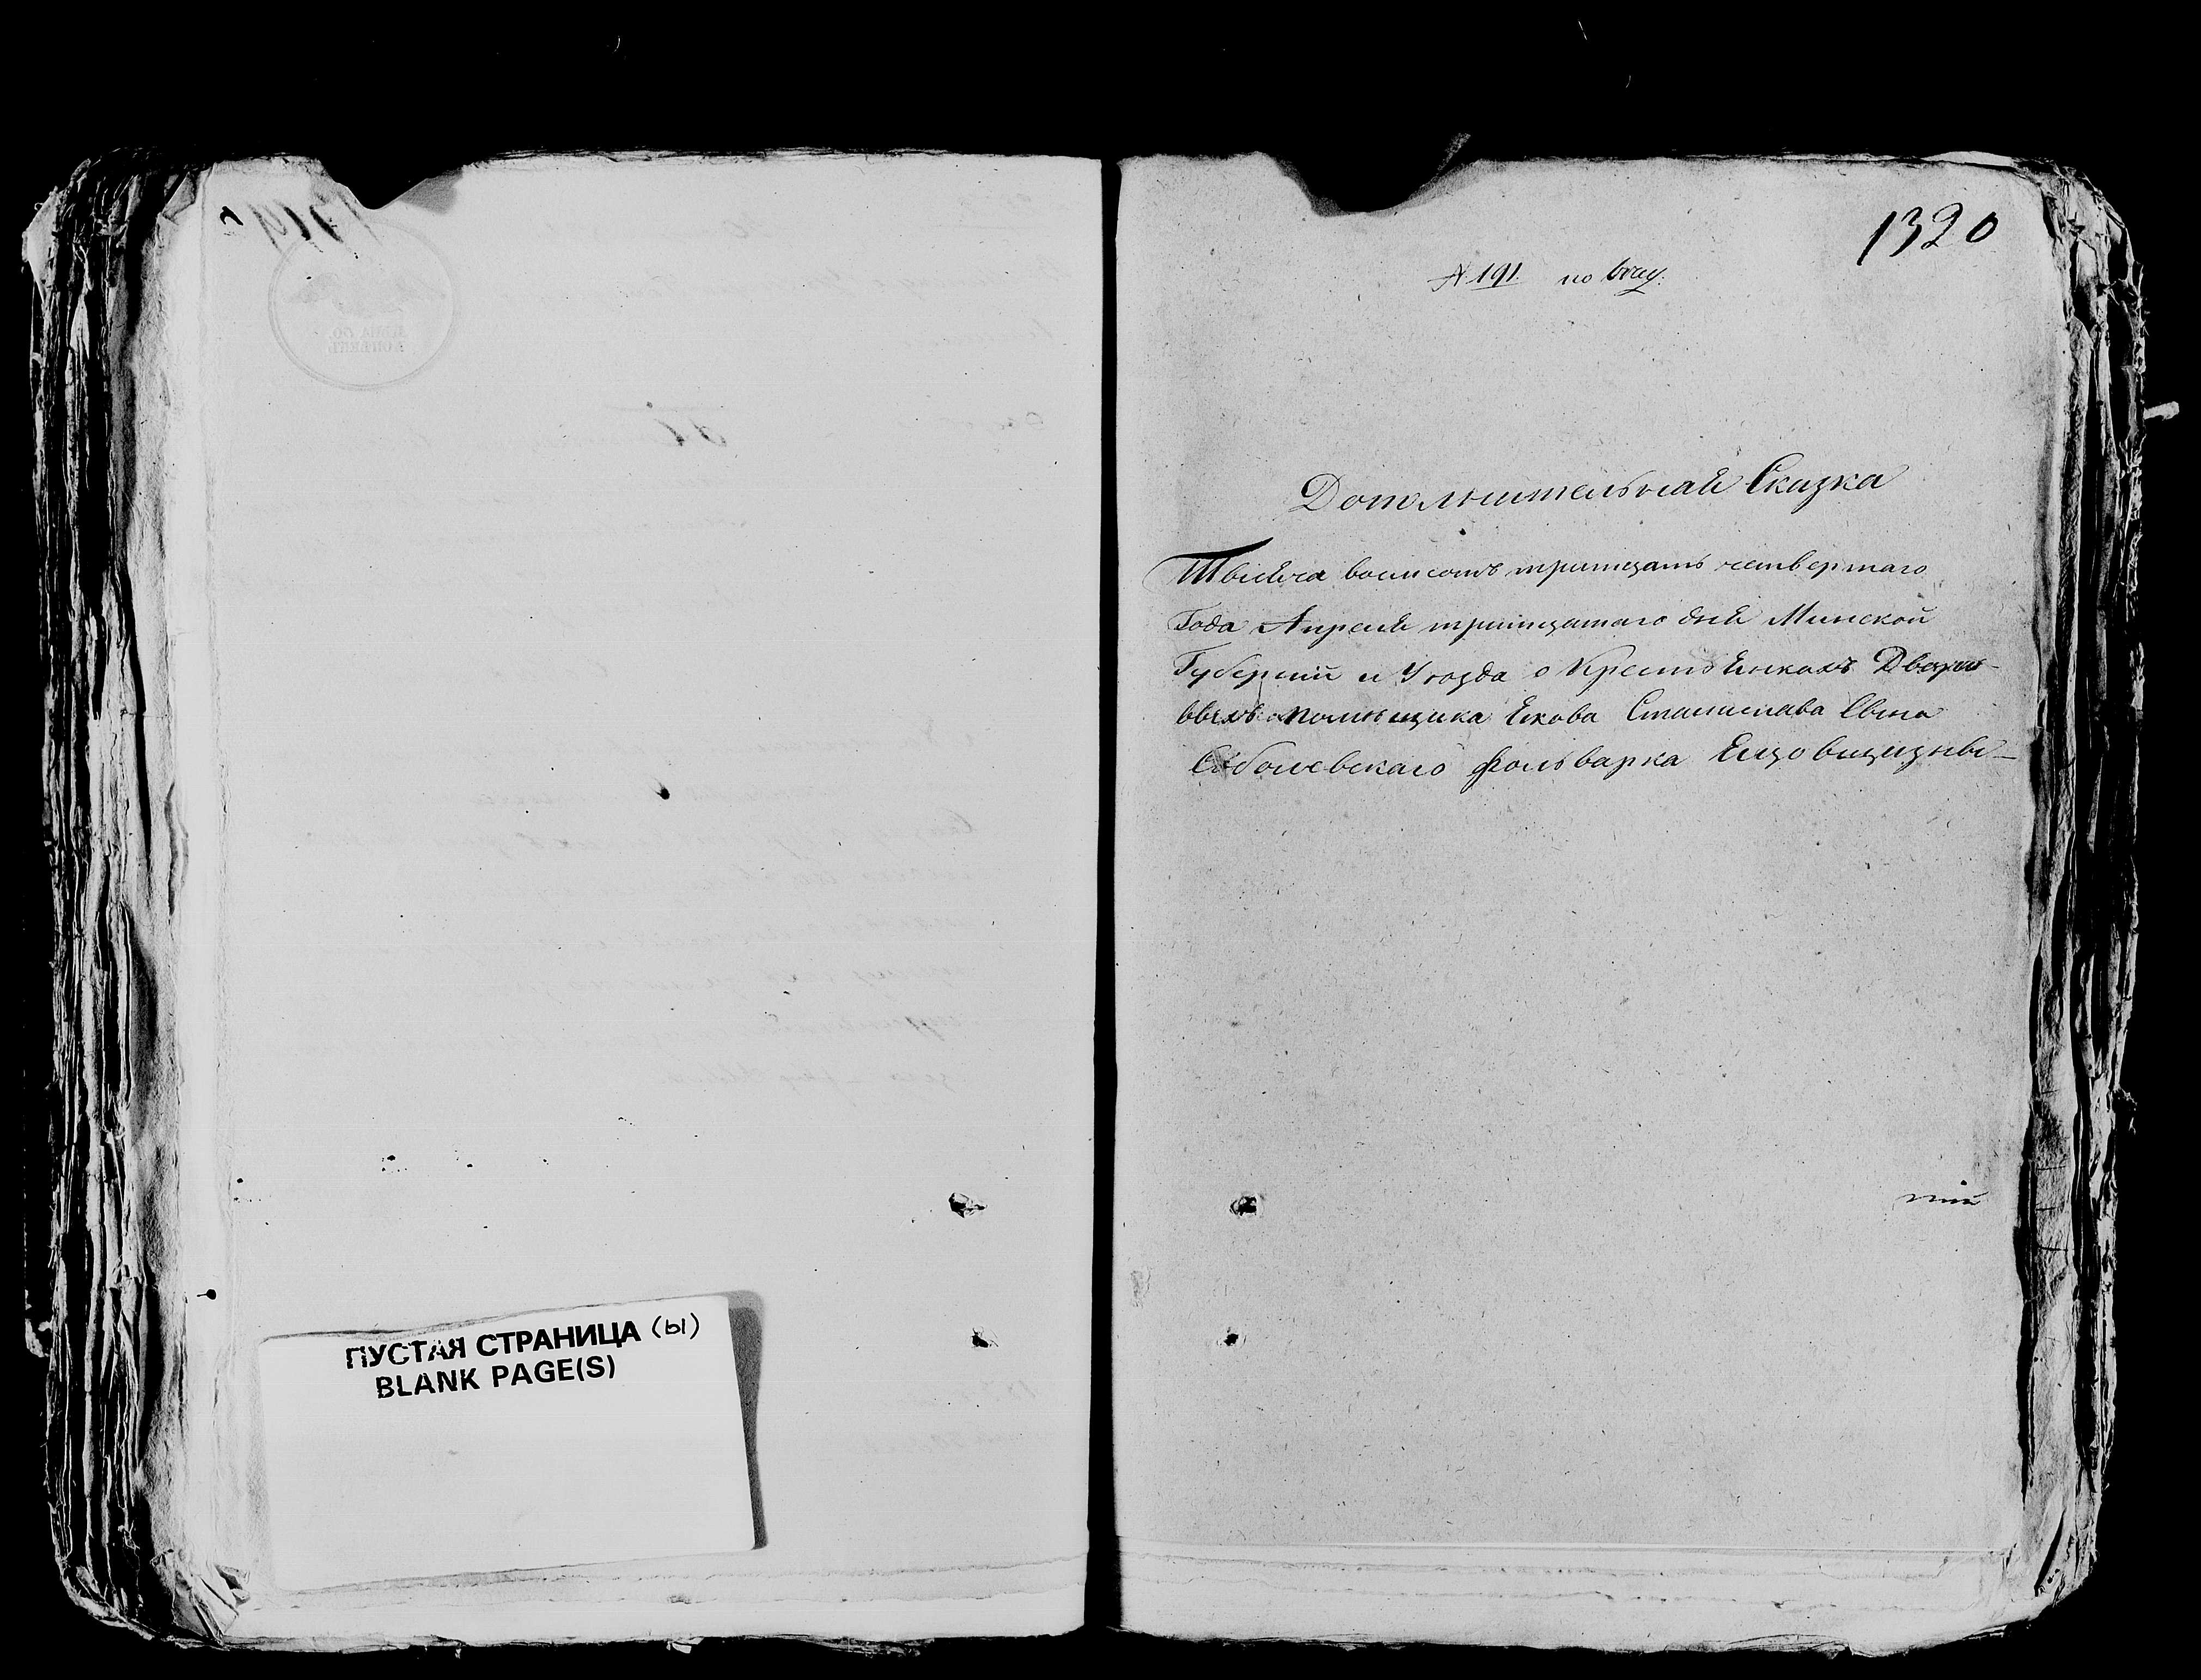 1320
№ 191. по
Дополнительная Сказка
Тысяча восимсотъ тритцать четвертаго
Года Апреля тритцатаго дня Минской
Губернiи и Уезда о Крестьянкахъ Дворо-
выхъ помещика Якова Станислава Сына
Соболевскаго фольварка Яцовщизны
ПУСТАЯ СТРАНИЦА (Ы)
BLANK PAGE(S)